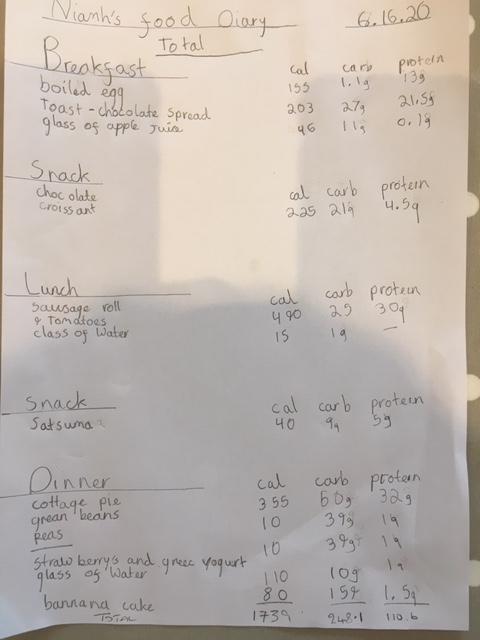 Nianh's food Diary 6.16.20
Total
Breakfast cal carb protein
boiled egg 155 1.1g 13g
Toast - chocolate spread 203 27g 21.5g
glass of apple Juice 46 11g 0.1g
Snack cal carb protein
chocolate
croissant 225 21g 4.5g
Lunch cal carb protein
Sausage roll 490 25 30g
& Tomatoes
class of Water 15 1g —
Snack cal carb protein
Satsuma 40 9g 5g
Dinner cal carb protein
cottage pie 355 60g 32g
grean beans 10 39g 1g
peas 10 39g 1g
straw berry's and greec yogurt 110 10g 1g
glass of Water
bannana cake 80 15g 1.5g
TOTAL 1739 248.1 110.6